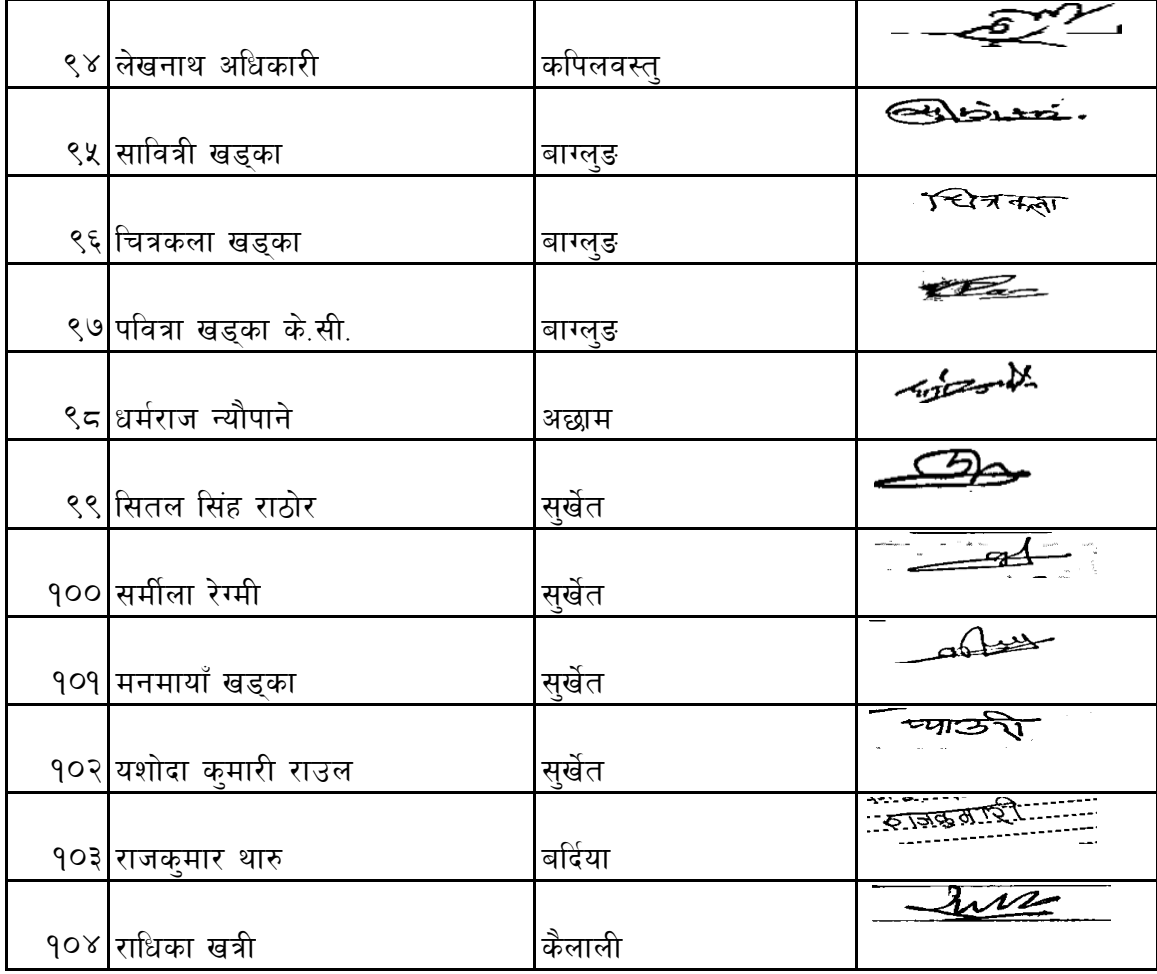 ९४ लेखनाथ अधिकारी कपिलवस्तु
९५ सावित्री खड्का बाग्लुङ
९६ चित्रकला खड्का बाग्लुङ चित्रकला
९७ पवित्रा खड्का के.सी. बाग्लुङ
९८ धर्मराज न्यौपाने अछाम
९९ सितल सिंह राठोर सुर्खेत
१०० सर्मीला रेग्मी सुर्खेत
१०१ मनमायाँ खड्का सुर्खेत
१०२ यशोदा कुमारी राउल सुर्खेत प्याउरी
१०३ राजकुमार थारु बर्दिया राजकुमारी
१०४ राधिका खत्री कैलाली